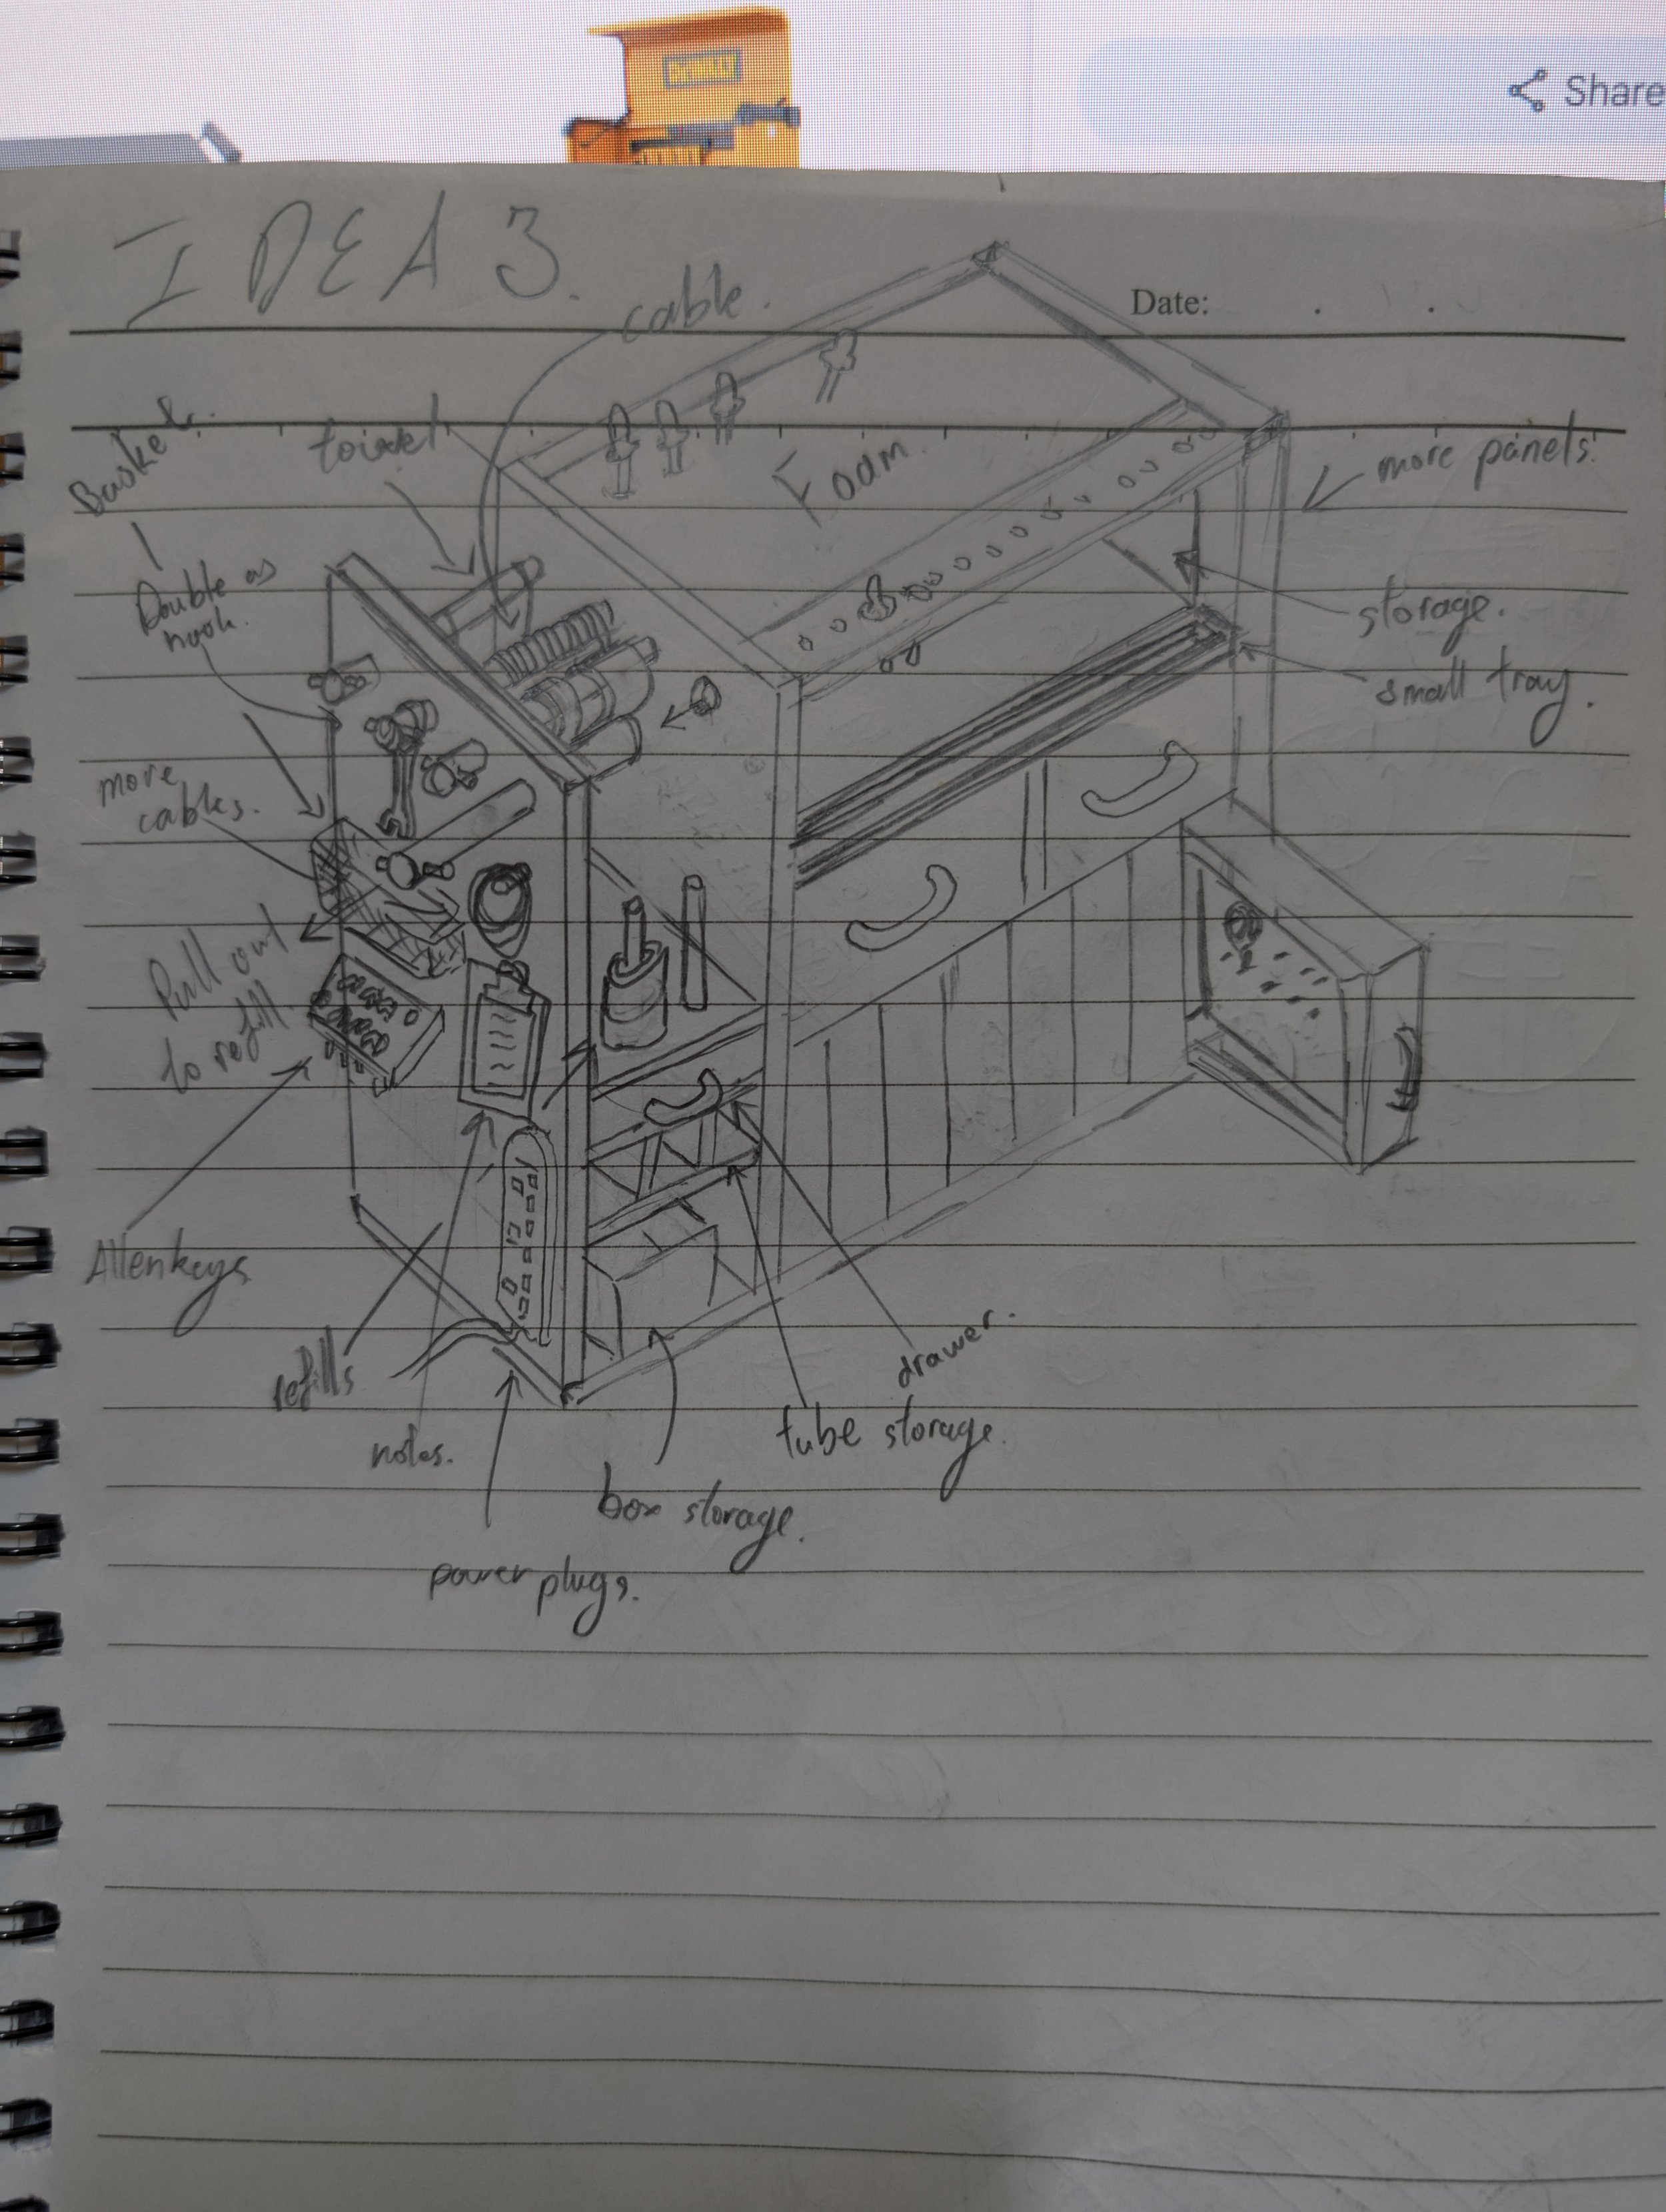 DEWALT
Share
IDEA 3.
Date: . .
cable.
Basket.
towel
Foam.
more panels.
Double as
hook.
storage.
small tray.
more
cables.
Pull out
to refill
Allenkeys
refills
notes.
drawer.
tube storage.
box storage.
power plugs.